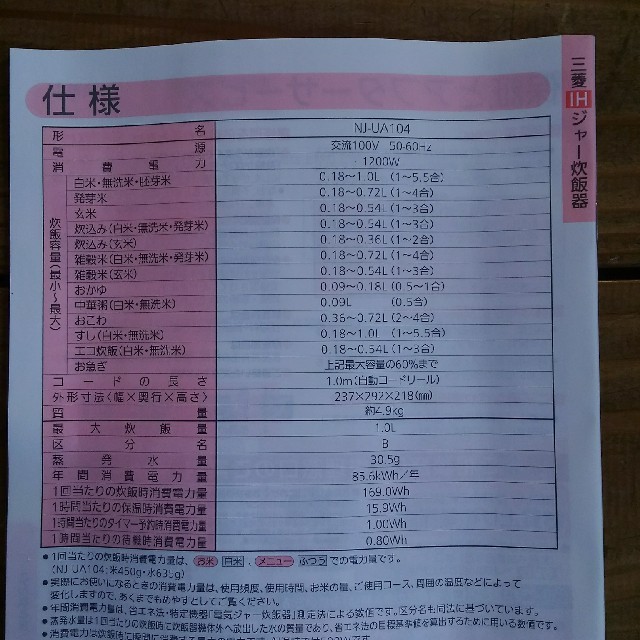 三菱IHジャー炊飯器
仕様
形名 NJ-UA104
電源 交流100V 50-60Hz
消費電力 1200W
炊飯容量(最小~最大)
白米・無洗米・胚芽米 0.18~1.0L(1~5.5合)
発芽米 0.18~0.72L(1~4合)
玄米 0.18~0.54L(1~3合)
炊込み(白米・無洗米・発芽米) 0.18~0.54L(1~3合)
炊込み(玄米) 0.18~0.36L(1~2合)
雑穀米(白米・無洗米・発芽米) 0.18~0.72L(1~4合)
雑穀米(玄米) 0.18~0.54L(1~3合)
おかゆ 0.09~0.18L(0.5~1合)
中華粥(白米・無洗米) 0.09L (0.5合)
おこわ 0.36~0.72L(2~4合)
すし(白米・無洗米) 0.18~1.0L (1~5.5合)
エコ炊飯(白米・無洗米) 0.18~0.54L(1~3合)
お急ぎ 上記最大容量の60%まで
コードの長さ 1.0m(自動コードリール)
外形寸法(幅×奥行×高さ) 237×292×218(mm)
質量 約4.9kg
最大炊飯量 1.0L
区分名 B
蒸発水量 30.5g
年間消費電力量 85.6kWh/年
1回当たりの炊飯時消費電力量 169.0Wh
1時間当たりの保温時消費電力量 15.9Wh
1時間当たりのタイマー予約時消費電力量 1.00Wh
1時間当たりの待機時消費電力量 0.80Wh
●1回当たりの炊飯時消費電力量は、お米 白米、メニュー ふつうでの電力量です。
(NJ-UA104:米450g・水635g)
●実際にお使いになるときの消費電力量は、使用頻度、使用時間、お米の量、ご使用コース、周囲の温度などによって
変化しますので、あくまでもめやすとしてご覧ください。
●年間消費電力量は、省エネ法・特定機器「電気ジャー炊飯器」測定法による数値です。区分名も同法に基づいています。
●蒸発水量は1回当たりの炊飯時に炊飯器機体外へ放出した水の質量であり、省エネ法の目標基準値を算出するために用いる数値です。